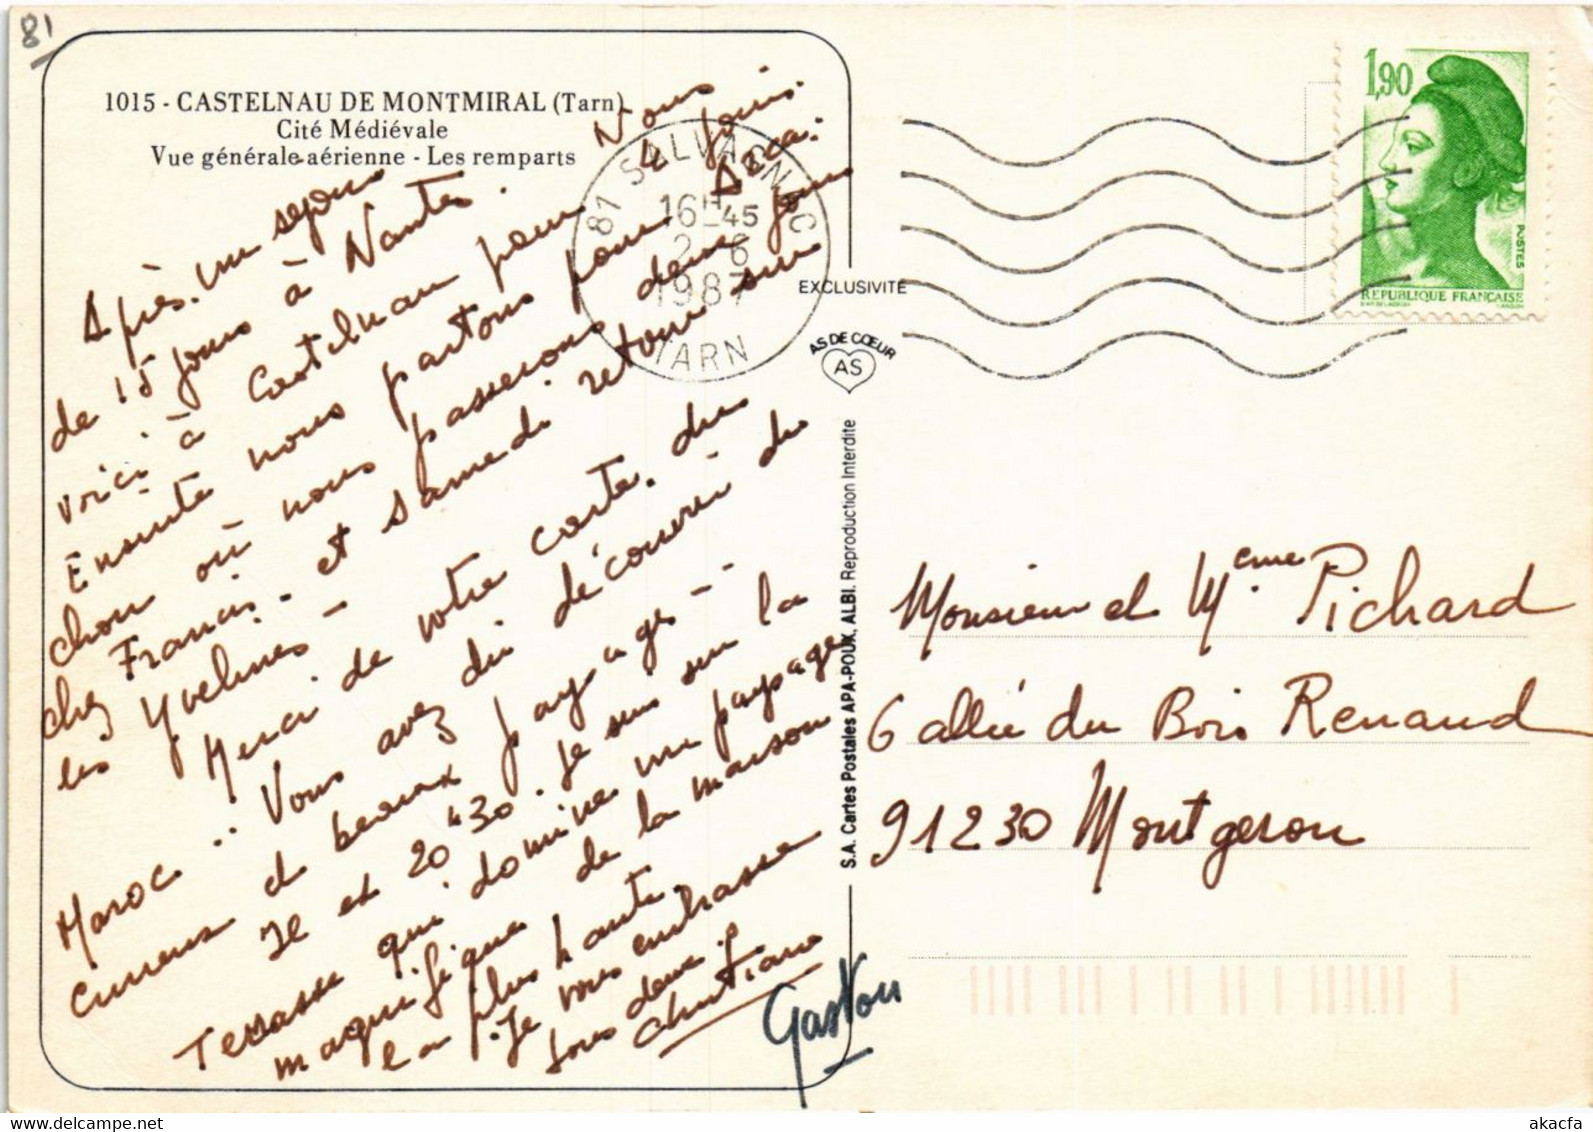 81
1015 - CASTELNAU DE MONTMIRAL (Tarn)
Cité Médiévale
Vue générale-aérienne - Les remparts
Après un séjour
de 15 jours à Nantes. Nous
voici à Castelnau pour 4 jours.
Ensuite nous partons pour Arca:
chon où nous passerons deux jours
chez Francis - et samedi retour sur
les Yvelines -
Merci de votre carte du
Maroc .. Vous avez dû découvrir de
curieux et beaux paysages - -
Il est 20h30. Je suis sur la
Terrasse qui domine un paysage
magnifique de la maison
la plus haute.
Je vous embrasse
tous deux.
Christiane
Gaston
81 SALVAGNAC
16H45
2-6
1987
TARN
EXCLUSIVITÉ
AS DE CŒUR
AS
S.A. Cartes Postales APA-POUX, ALBI. Reproduction Interdite
1,90
POSTES
REPUBLIQUE FRANÇAISE
Monsieur et Mme Pichard
6 allée du Bois Renaud
91230 Montgeron
akacfa